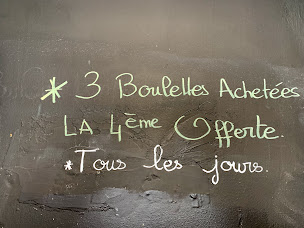 * 3 Boulelles Achetées
LA 4ème Offerte.
* Tous les jours.